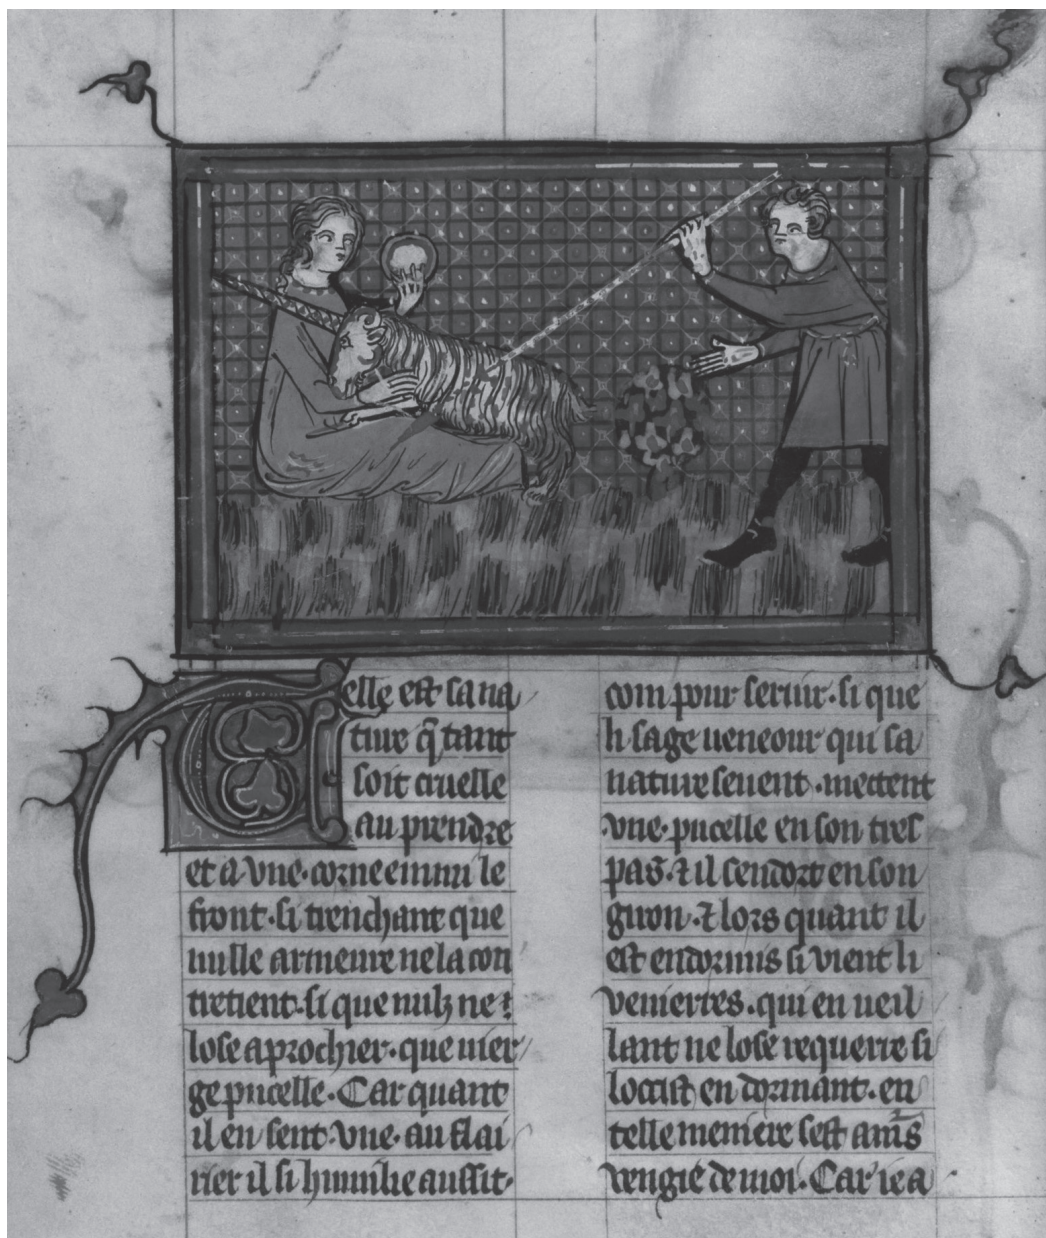 elle est sa na
ture q̃ tant
soit cruelle
au prendre
et a vne· corne emmi le
front· si trenchant que
nulle armeure ne la con
tretient· si que nulz ne
lose aprochier· que vier
ge pucelle· Car quant
il en sent· vne· au flai
rier il si humilie aussit·
com pour seruir· si que
li sage ueneour qui sa
nature seuent· mettent
vne· pucelle en son tres
pas· ⁊ il sendort en son
giron· ⁊ lors quant il
est endormis si vient li
venierres· qui en ueil
lant ne lose requerre si
locist en dormant· en
telle meniere sest am̃s
vengie de moi· Car ie a